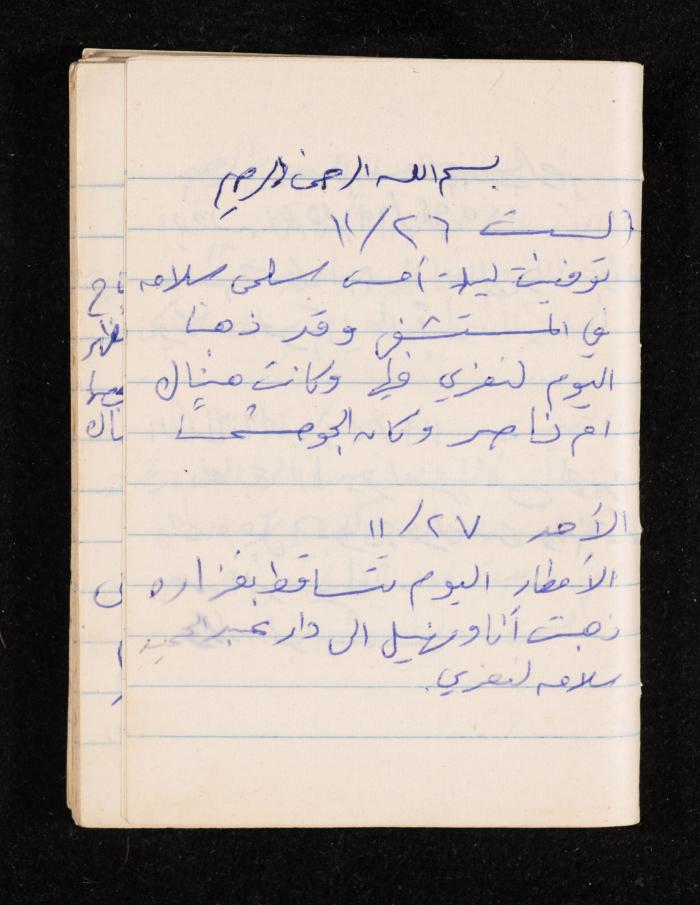 بسم الله الرحمن الرحيم
السبت ٢٦/١١
توفيت ليلة أمس سلمى سلامه
في المستشفى وقد ذهبنا
اليوم لنعزي فيها وكانت هناك
ام ناصر وكان الجو مشمساً
الأحد ٢٧/١١
الأمطار اليوم تتساقط بغزاره
ذهبت أنا ونهيل الى دار عبد الحميد
سلامه لنعزي.